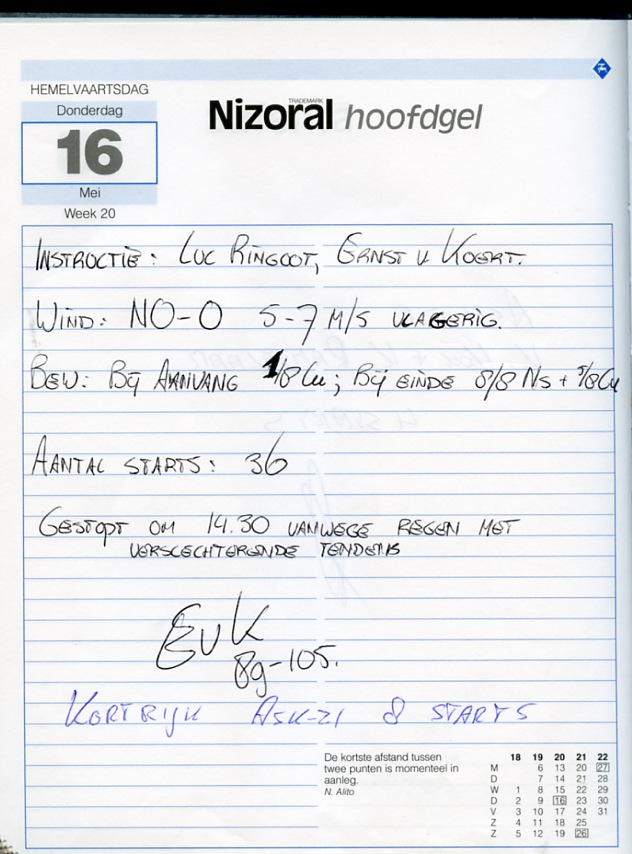 HEMELVAARTSDAG
Donderdag
16
Mei
Week 20
TRADEMARK
Nizoral hoofdgel
INSTRUCTIE: LUC RINGOOT, ERNST V KOERT.
WIND: NO-O 5-7 M/S VLAGERIG.
BEW: BIJ AANVANG 1/8 Cu; BIJ EINDE 8/8 Ns + 5/8 Cu
AANTAL STARTS: 36
GESTOPT OM 14.30 VANWEGE REGEN MET
VERSLECHTERENDE TENDENS
EvK
Bg-105.
KORTRIJK ASK-21 8 STARTS
De kortste afstand tussen
twee punten is momenteel in
aanleg.
N. Alito
18 19 20 21 22
M 6 13 20 27
D 7 14 21 28
W 1 8 15 22 29
D 2 9 16 23 30
V 3 10 17 24 31
Z 4 11 18 25
Z 5 12 19 26